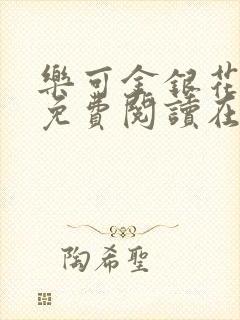 樂可金銀花
免費閱讀在
陶希聖